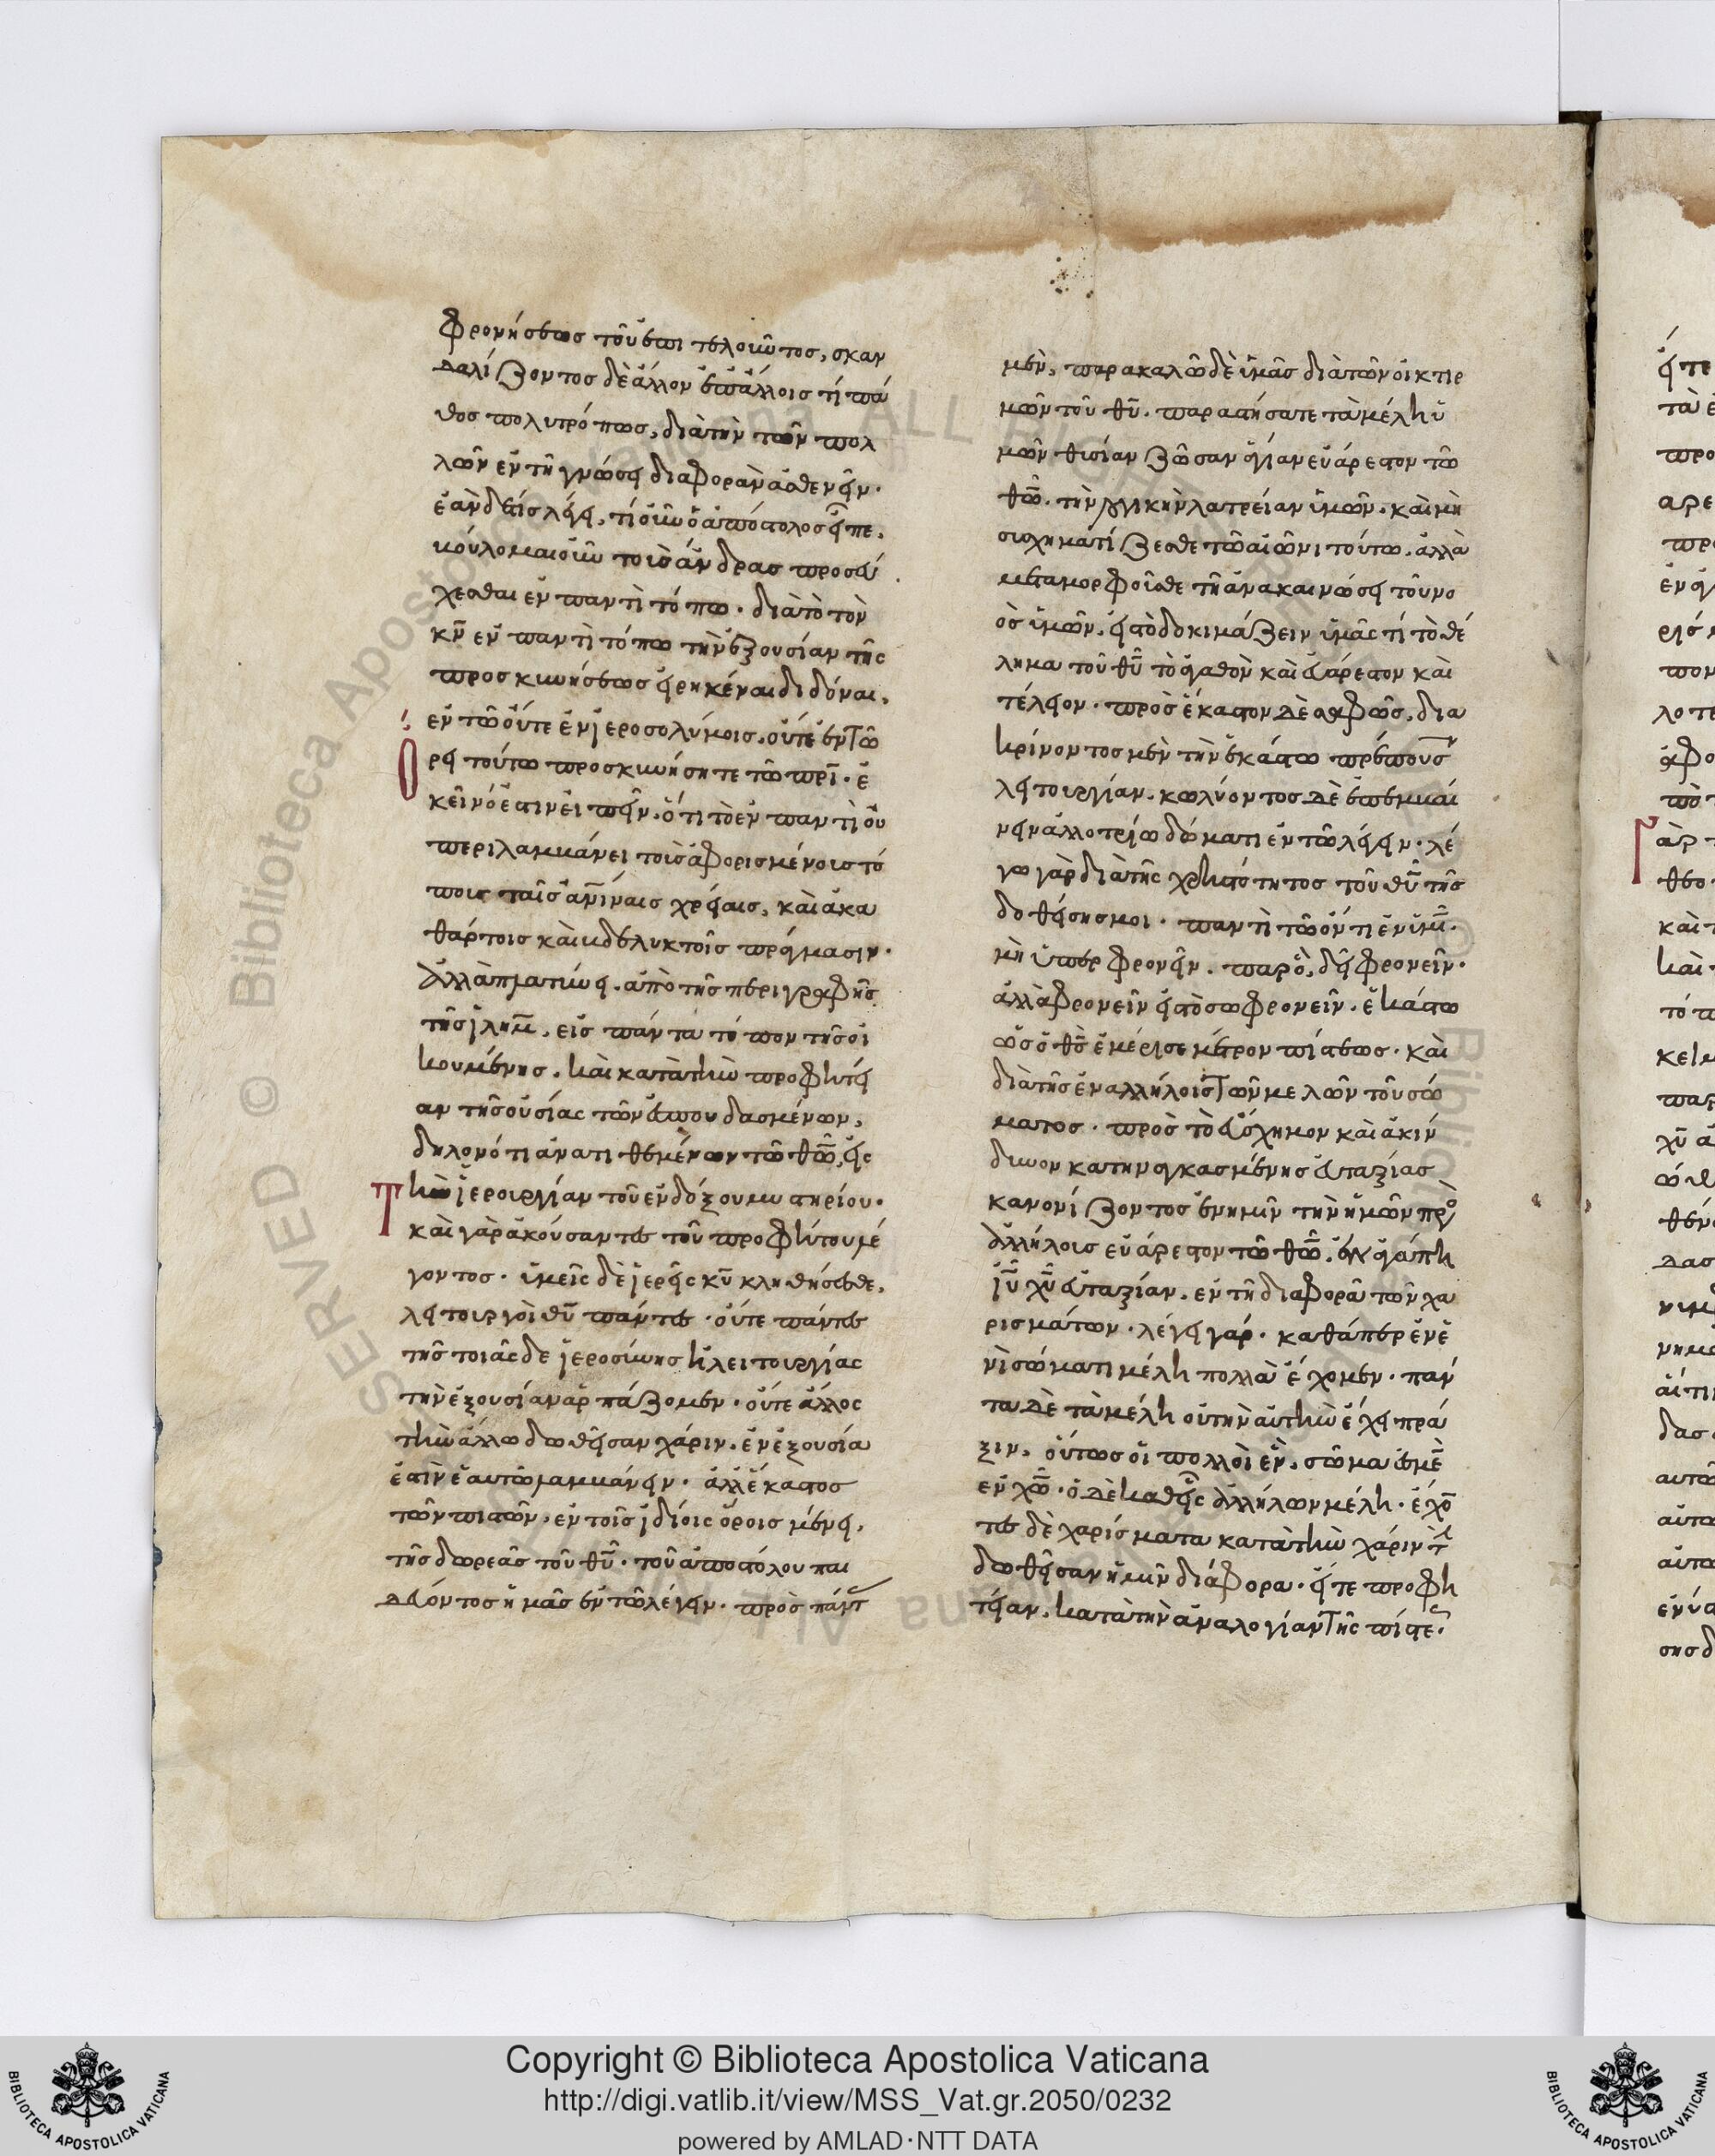 φρονήσεως τοῦ ἐπιτελοῦντος, σκαν
δαλίζοντος δὲ ἄλλον ἐπ' ἄλλοις τί πά
θος πολυτρόπως, διὰ τὴν τῶν πολ
λῶν ἐν τῇ γνώσει διαφορὰν ἀσθενεῖν·
ἐὰν δέ τις λέγει, τί οὖν ὁ ἀπόστολος εἶπε,
βούλομαι οὖν τοὺς ἄνδρας προσεύ
χεσθαι ἐν παντὶ τόπω· διὰ τὸ τὸν
κν ἐν παντὶ τόπω τὴν ἐξουσίαν τῆς
προσκυνήσεως εἰρηκέναι διδόναι,
ἐν τῶ οὔτε ἐν ἱεροσολύμοις, οὔτε ἐν τῶ
ὄρει τούτω προσκυνήσητε τῶ πρι· ἐ
κεῖνό ἐστιν εἰπεῖν, ὅτι τὸ ἐν παντὶ οὐ
περιλαμβάνει τοῖς ἀφορισμένοις τό
ποις ταῖς ἀνίναις χρείαις, καὶ ἀκα
θάρτοις καὶ βδελυκτοῖς πράγμασιν·
ἀλλὰ πλατύνει ἀπὸ τῆς περιγραφῆς
τῆς ιλημ, εἰς πάντα τόπον τῆς οἰ
κουμένης, καὶ κατὰ τὴν προφητεί
αν τῆς οὐσίας τῶν ἐσπουδασμένων,
δηλονότι ἀνατιθεμένων τῶ θῶ, εἰς
τὴν ἱερουργίαν τοῦ ἐνδόξου μυστηρίου·
καὶ γὰρ ἀκούσαντες τοῦ προφήτου λέ
γοντος· ὑμεῖς δὲ ἱερεῖς κυ κληθήσεσθε,
λειτουργοὶ θυ πάντες· οὔτε πάντες
τῆς τοιᾶσδε ἱεροσύνης ἢ λειτουργίας
τὴν ἐξουσίαν ἁρπάζομεν· οὔτε ἄλλος
τὴν ἄλλω δωθεῖσαν χάριν, ἐν ἐξουσία
ἐστὶν ἑαυτῶ λαμβάνειν· ἀλλ' ἕκαστος
τῶν πιστῶν, ἐν τοῖς ἰδίοις ὅροις μένει,
τῆς δωρεᾶς τοῦ θυ· τοῦ ἀποστόλου παι
δεύοντος ἡμᾶς ἐν τῶ λέγειν· πρὸς πάντ
μὲν, παρακαλῶ δὲ ὑμᾶς διὰ τῶν οἰκτιρ
μῶν τοῦ θυ· παραστήσατε τὰ μέλη ὑ
μῶν θυσίαν ζῶσαν ἁγίαν εὐάρεστον τῶ
θῶ, τὴν λογικὴν λατρείαν ὑμῶν, καὶ μὴ
συσχηματίζεσθε τῶ αἰῶνι τούτω, ἀλλὰ
μεταμορφοῦσθε τῇ ἀνακαινώσει τοῦ νο
ὸς ὑμῶν, εἰς τὸ δοκιμάζειν ὑμᾶς τί τὸ θέ
λημα τοῦ θυ τὸ ἀγαθὸν καὶ εὐάρεστον καὶ
τέλειον· πρὸς ἕκαστον δὲ σαφῶς, δια
κρίνοντος μὲν τὴν ἑκάστω πρέπουσ
λειτουργίαν, κωλύοντος δὲ ἐπεμβαί
νειν ἀλλοτρίω δώματι ἐν τῶ λέγειν· λέ
γω γὰρ διὰ τῆς χρηστότητος τοῦ θυ τῆς
δοθείσης μοι· παντὶ τῶ ὄντι ἐν ὑμ·
μὴ ὑπερφρονεῖν, παρ' ὃ, δεῖ φρονεῖν·
ἀλλὰ φρονεῖν εἰς τὸ σωφρονεῖν, ἑκάστω
ὡς ὁ θς ἐμέρισε μέτρον πίστεως· καὶ
διὰ τῆς ἐν ἀλλήλοις τῶν μελῶν τοῦ σώ
ματος· πρὸς τὸ εὔσχημον καὶ ἀκίν
δυνον κατηναγκασμένης εὐταξίας
κανονίζοντος ἐν ἡμῖν τὴν ἡμῶν πρὸ
ἀλλήλοις εὐάρεστον τῶ θῶ, ἐν ἀγάπη
ιυ χυ εὐταξίαν, ἐν τῇ διαφορᾶ τῶν χα
ρισμάτων· λέγει γάρ· καθάπερ ἐν ἑ
νὶ σώματι μέλη πολλὰ ἔχομεν· πάν
τα δὲ τὰ μέλη οὐ τὴν αὐτὴν ἔχει πρά
ξιν, οὕτως οἱ πολλοὶ ἓν, σῶμα ἐσμὲ
ἐν χῶ· ὁ δὲ καθεῖς ἀλλήλων μέλη· ἔχο
τες δὲ χαρίσματα κατὰ τὴν χάριν τ
δωθεῖσαν ἡμῖν διάφορα· εἴτε προφη
τείαν, κατὰ τὴν ἀναλογίαν τῆς πίστε·
Copyright © Biblioteca Apostolica Vaticana
http://digi.vatlib.it/view/MSS_Vat.gr.2050/0232
powered by AMLAD·NTT DATA